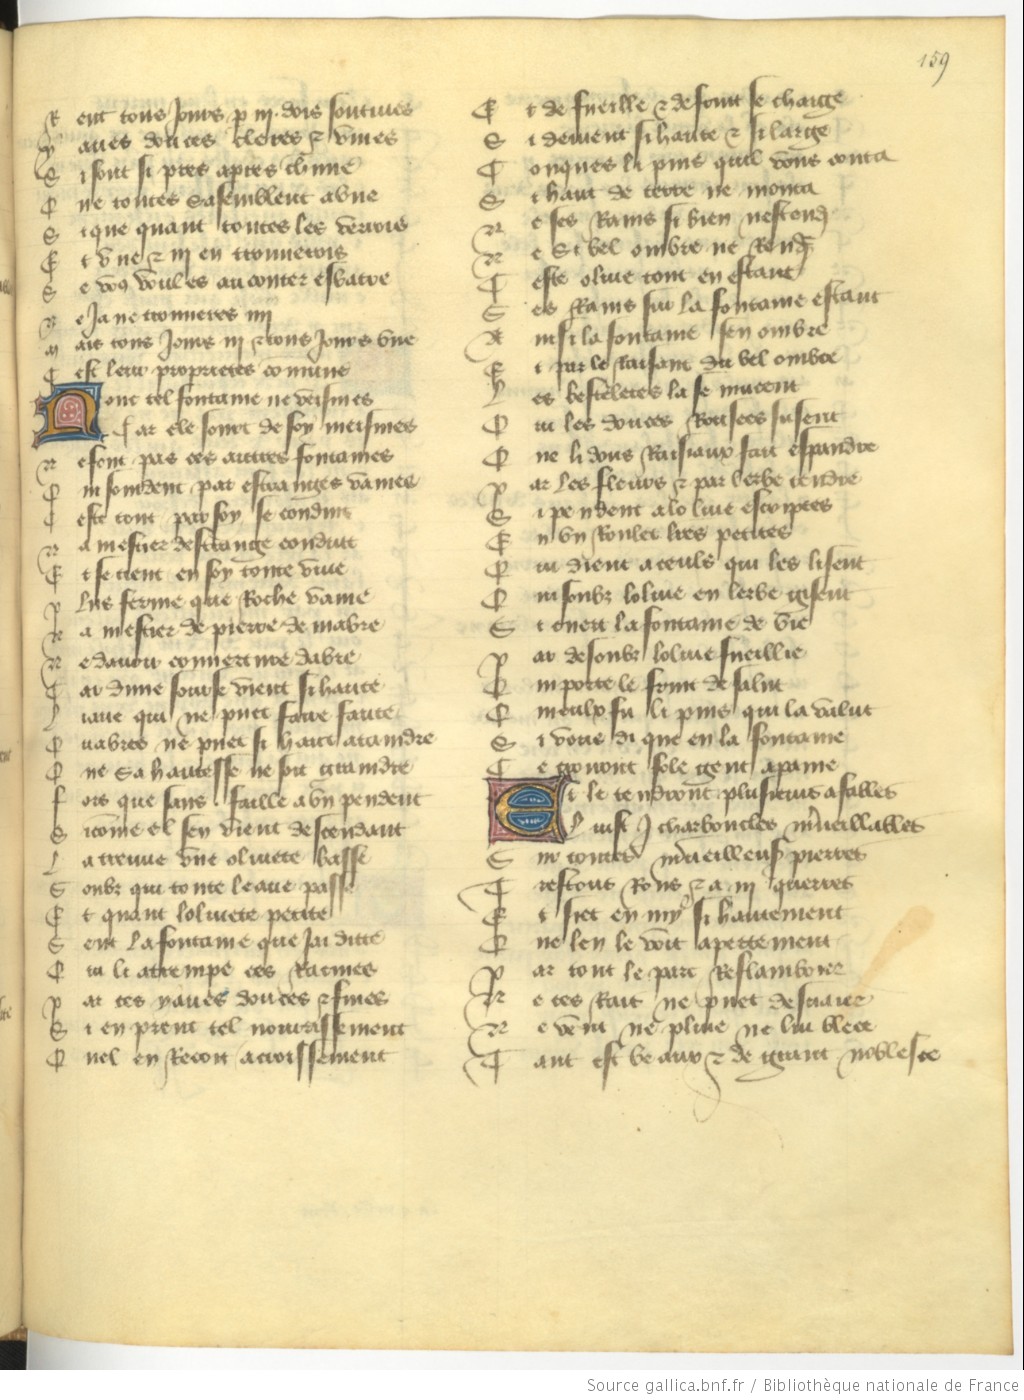 159
R ent tous jours p iii dois soutives
Y aues douces cleres & vives
S i sont si pres apres chune
Q ne toutes sasemblent a une
S ique quant toutes les verrois
E t vne & iii en trouverois
S e vo9 voules au conter esbatre
N e ja ne trouveres iiii
M ais tous jours iii & tous jours vne
C est leur proprietes comune
N onc tel fontaine ne veismes
C ar ele sourt de soy meismes
N e font pas ces autres fontaines
Q ui sourdent par estranges vaines
C este tout par soy se conduit
N a mestier destrange conduit
E t se tient en soy toute vive
P lus ferme que Roche vaine
N a mestier de pierre de mabre
N e davoir couverture dabre
C ar dune sourse vient si haute
L iaue qui ne puet faire faute
Q uabres ne puet si haut ataindre
Q ne sa hautesse ne soit graindre
F ors que sans faille a vn pendent
S icome el sen vient descendant
L a treuve vne olivete basse
S oubz qui toute leaue passe
E t quant lolivete petite
S ent la fontaine que jai ditte
Q ui li atrempe ces Racines
P ar ces yaues douces & fines
S i en prent tel nourrissement
Q uel en Recoit acroissement
E t de fueille & de fruit se charge
S i devient si haute & si large
C onques li pins quil vous conta
S i haut de terre ne monta
N e ses Rains si bien nestendi
N e si bel ombre ne Rendi
C este olive tout en estant
S es Rains sur la fontaine estant
A insi la fontaine sen ombre
E t par le Raisant du bel ombre
L es besteletes la se mucent
Q ui les douces Rousees sucent
Q ne li dous Raisiaux fait espandre
P ar les fleurs & par lerbe tendre
S i pendent a lolive escriptes
E n vn Roulet letres petites
Q ui dient a ceuls qui les lisent
Q ui soubz lolive en lerbe gisent
S i cuert la fontaine de vie
P ar desoubz lolive fueillie
Q ui porte le fruit de salut
Q uieulx fu li pins qui la valut
S i vous di que en la fontaine
C e croiront fole gent a paine
E t le tendront plusieurs a fables
L uist j charboucles mveillables
S ur toutes mveilleuses pierres
T restous Rons & a iii querres
E t siet en my si hautement
Q ne len le voit apertement
P ar tout le parc Reflamboier
N e ces Rais ne puet desvoier
N e vent ne pluie ne bleece
T ant est beaux & de grant noblesce
Source gallica.bnf.fr / Bibliothèque nationale de France